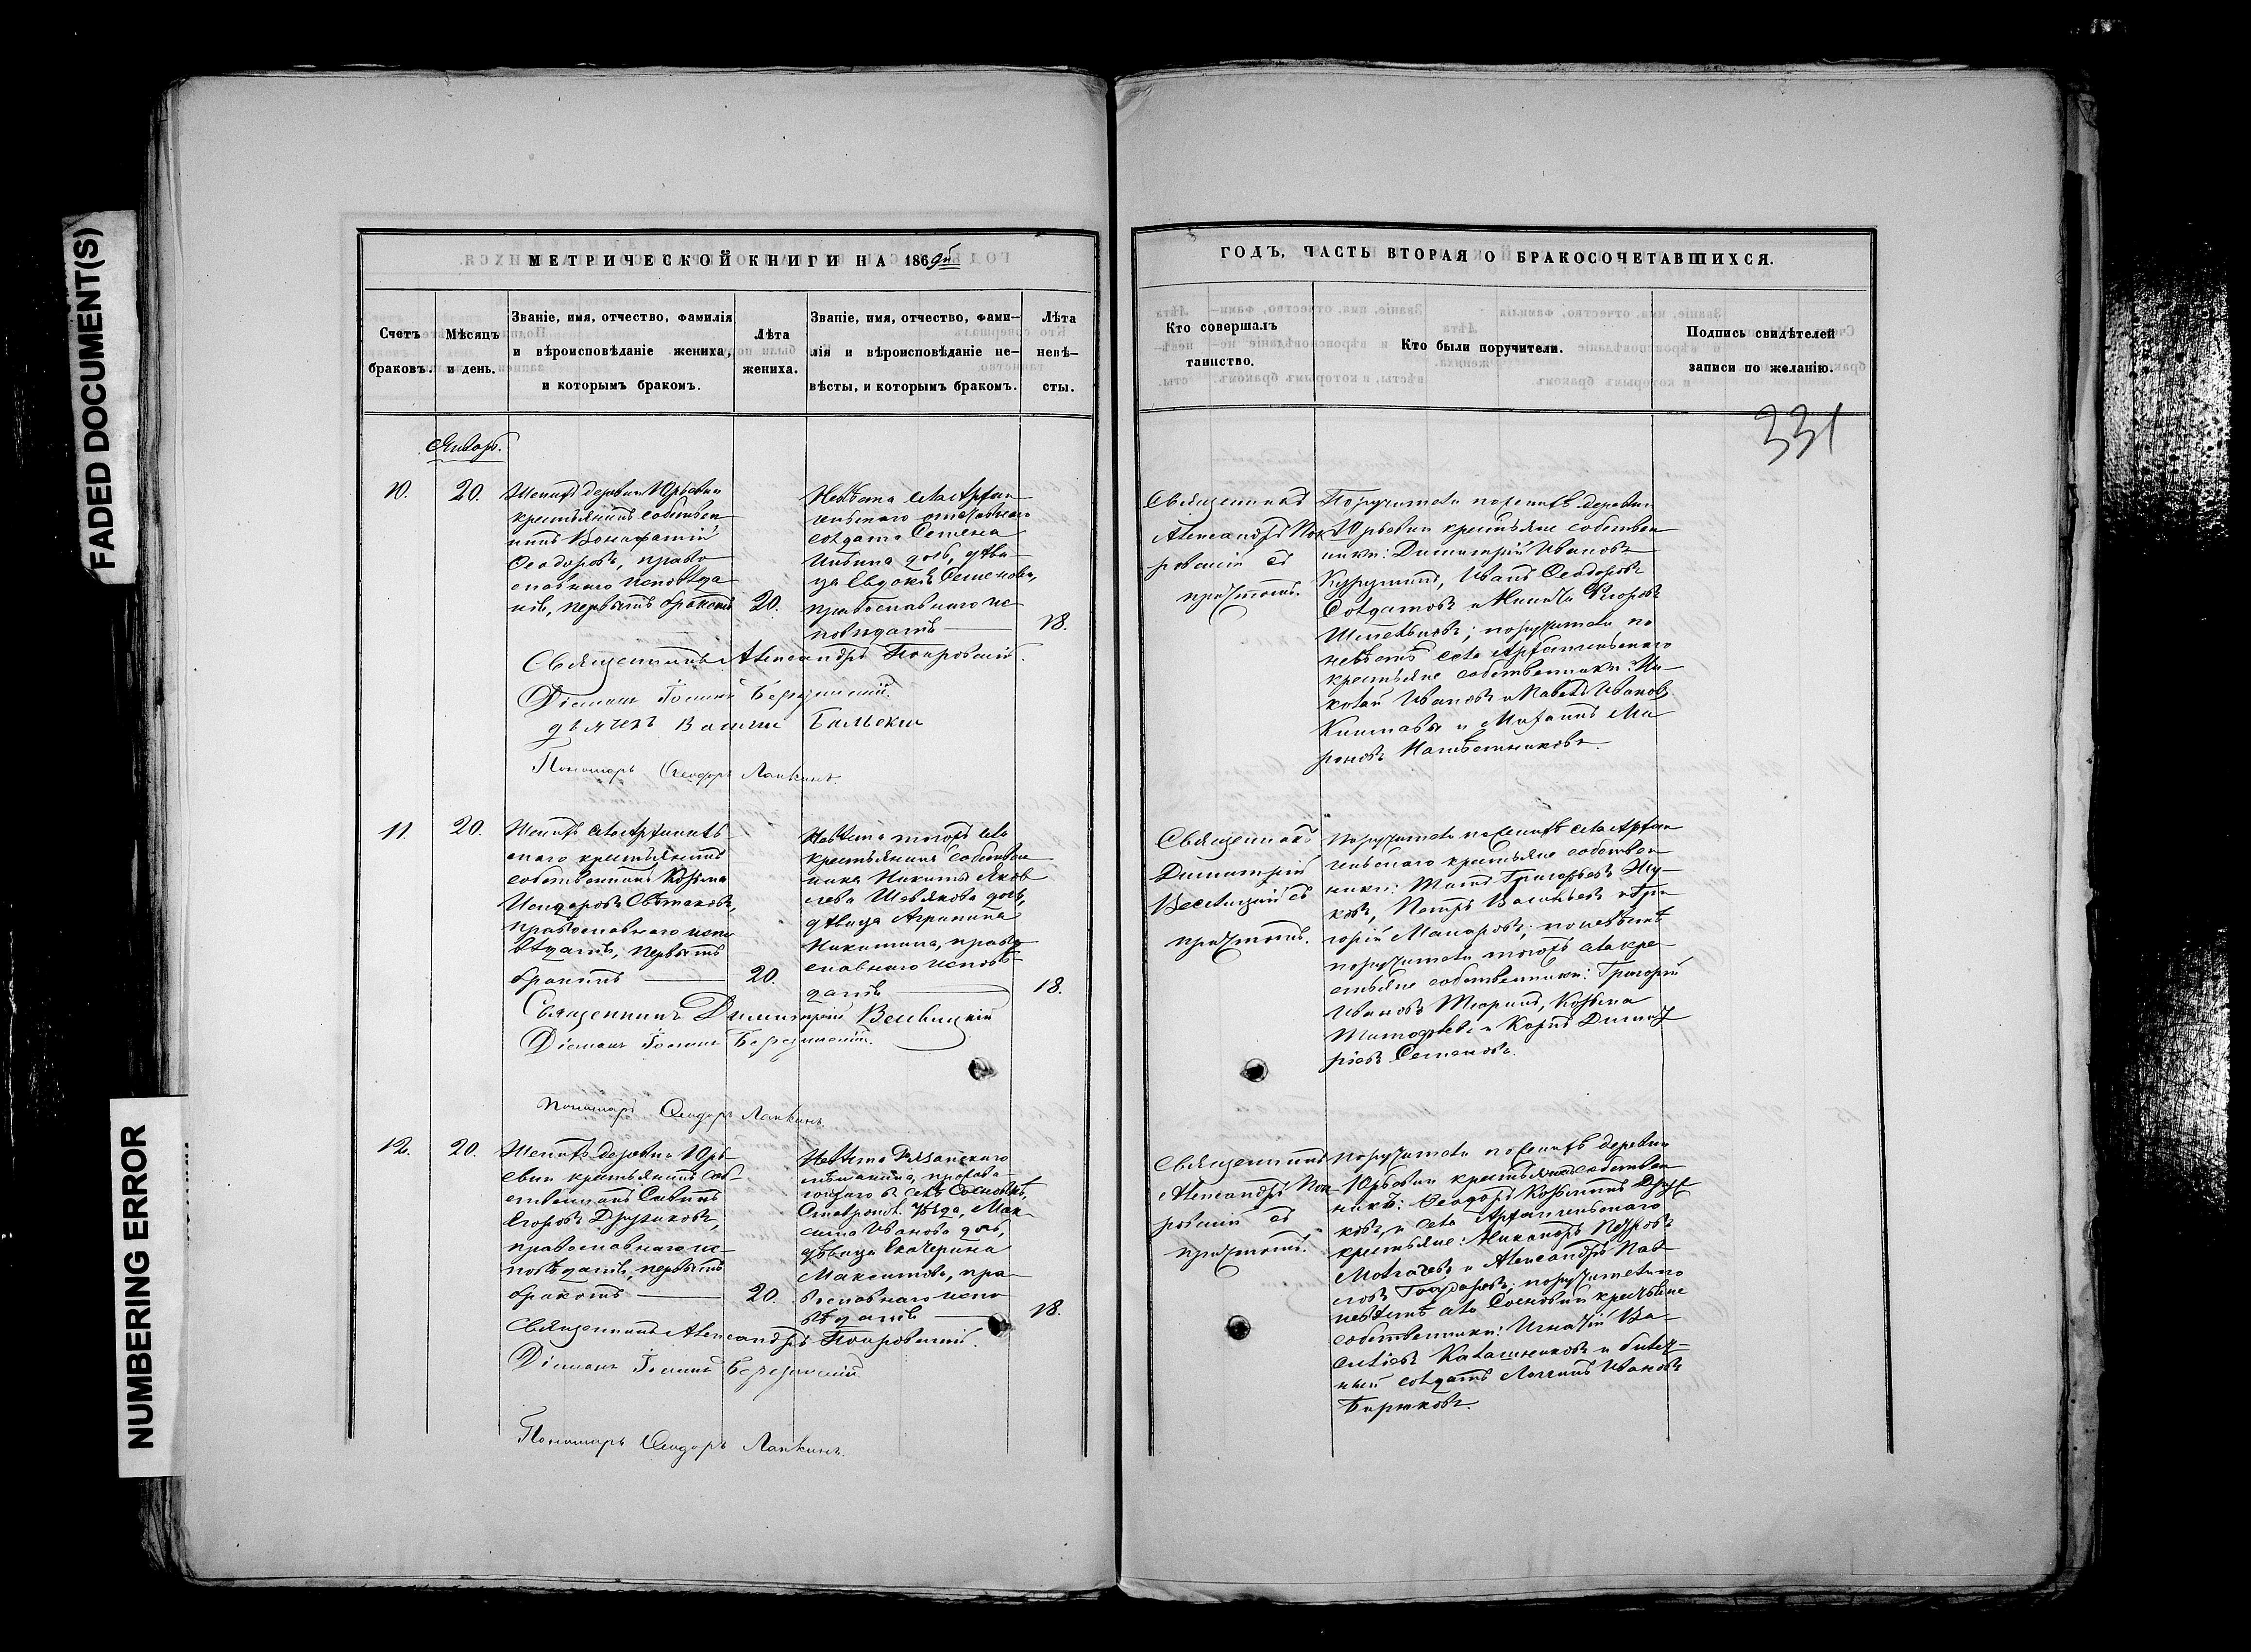 FADED DOCUMENT(S)
NUMBERING ERROR
МЕТРИЧЕСКОЙ КНИГИ НА 1869й
Счетъ браковъ.
Мѣсяцъ и день.
Званіе, имя, отчество, фамилія
и вѣроисповѣданіе жениха,
и которымъ бракомъ.
Лѣта
жениха.
Званіе, имя, отчество, фами-
лія и вѣроисповѣданіе не-
вѣсты, и которымъ бракомъ.
Лѣта
невѣ-
сты.
Январь.
10.
20.
Женихъ деревни Юрьевки
крестьянинъ собствен
никъ Вонифатій
Ѳеодоровъ, право
славнаго исповѣда
нія, первымъ бракомъ
20.
Невѣста села Архан
гельскаго отставнаго
солдата Семена
Ильина дочь, дѣви-
ца Евдокія Семенова,
православнаго ис
повѣданія
18.
Священникъ Александръ Покровскій.
Діаконъ Іоаннъ
Дьячекъ Василій
Пономарь Ѳеодоръ Лапкинъ.
11.
20.
Женихъ села Архангель
скаго крестьянинъ
собственникъ Козьма
православнаго испо
вѣданія, первымъ
бракомъ
20.
Невѣста тогожъ села
крестьянина собствен
ника Никиты Яков
лева Шевякова дочь,
дѣвица Агрипина
Никитина, право
славнаго исповѣ-
данія
18.
Священникъ Димитрій Веселицкій
Діаконъ Іоаннъ
Пономарь Ѳеодоръ Лапкинъ.
12.
20.
Женихъ деревни Юрь-
евки крестьянинъ соб-
ственникъ Савинъ
Егоровъ Дружиковъ,
православнаго ис-
повѣданія, первымъ
бракомъ
20.
Невѣста Рязанскаго
мѣщанина, прожива-
ющаго въ селѣ Сосновкѣ,
Ставропол. уѣзда, Мак-
сима Иванова дочь,
дѣвица Екатерина
Максимова, пра-
вославнаго испо
вѣданія
18.
Священникъ Александръ Покровскій.
Діаконъ Іоаннъ
Пономарь Ѳеодоръ Лапкинъ.
ГОДЪ, ЧАСТЬ ВТОРАЯ О БРАКОСОЧЕТАВШИХСЯ.
Кто совершалъ
таинство.
Кто были поручители.
Подпись свидѣтелей
записи по желанію.
331
Священникъ
Александръ Пок
ровскій съ
причтомъ.
Поручители по женихѣ деревни
Юрьевки крестьяне собствен
ники: Димитрій Ивановъ
Иванъ Ѳеодоровъ
Солдатовъ и Никита Егоровъ
поручители по
невѣстѣ села Архангельскаго
крестьяне собственники: Ни-
колай Ивановъ и Павелъ Ивановъ
и
роновъ Намѣстниковъ.
Священникъ
Димитрій
Веселицкій съ
причтомъ.
Поручители по женихѣ села Архан
гельскаго крестьяне собствен
ники: Титъ Григорьевъ Жу-
ковъ, Петръ Васильевъ и Гри
горій Макаровъ; по невѣстѣ
поручители тогожъ села кре-
стьяне собственники: Григорій
Ивановъ Тюринъ, Козьма
Тимофѣевъ и Карпъ Димит
ріевъ Семеновъ.
Священникъ
Александръ Пок-
ровскій съ
причтомъ.
Поручители по женихѣ деревни
Юрьевки крестьянинъ собствен
никъ: Ѳеодоръ Козьминъ Друж
ковъ, и села Архангельскаго
крестьяне: Никаноръ Петровъ
Молгачевъ и Александръ Пав-
ловъ поручители по
невѣстѣ села Сосновки крестьяне
собственники: Игнатій Ва-
сильевъ Калашниковъ и билет-
ный солдатъ Логинъ Ивановъ
Бирюковъ.